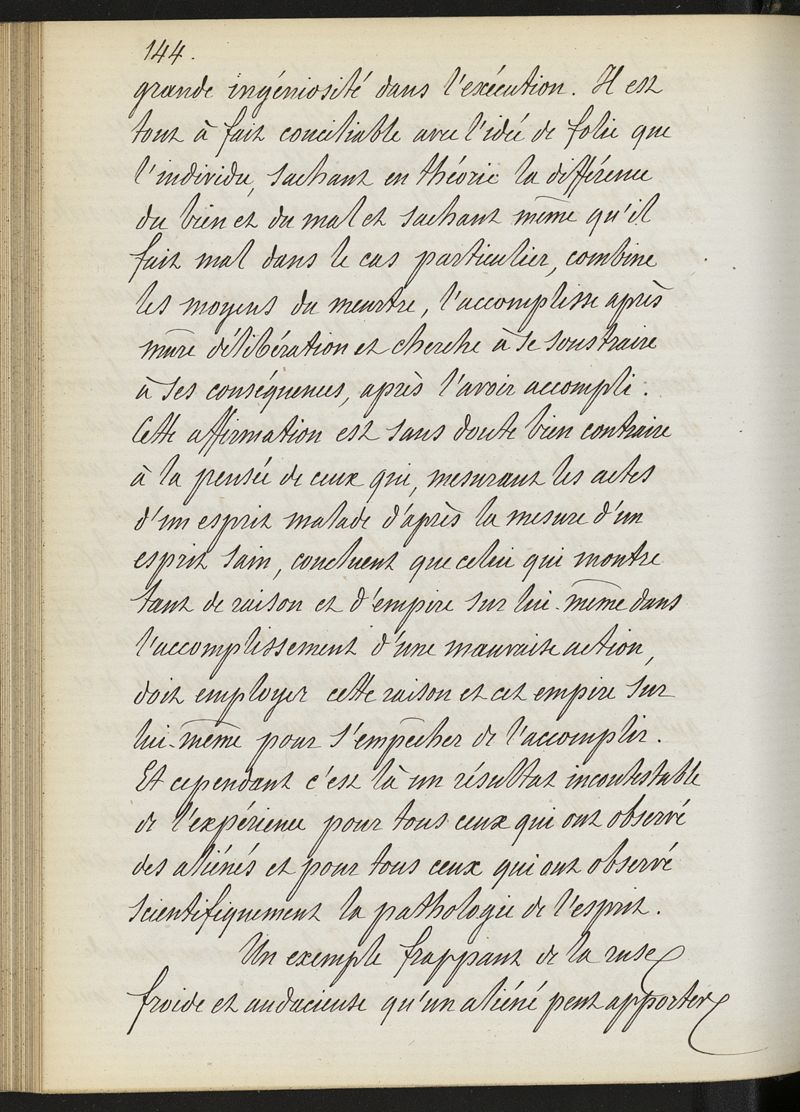 144.
grande ingéniosité dans l'exécution. Il est
tout à fait conciliable avec l'idée de folie que
l'individu, sachant en théorie la différence
du bien et du mal et sachant même qu'il
fait mal dans le cas particulier, combine
les moyens du meurtre, l'accomplisse après
mûre délibération et cherche à se soustraire
à ses conséquences, après l'avoir accompli.
Cette affirmation est sans doute bien contraire
à la pensée de ceux qui, mesurant les actes
d'un esprit malade d'après la mesure d'un
esprit sain, concluent que celui qui montre
tant de raison et d'empire sur lui-même dans
l'accomplissement d'une mauvaise action,
doit employer cette raison et cet empire sur
lui-même pour s'empêcher de l'accomplir.
Et cependant c'est là un résultat incontestable
de l'expérience pour tous ceux qui ont observé
des aliénés et pour tous ceux qui ont observé
scientifiquement la pathologie de l'esprit.
Un exemple frappant de la ruse
froide et audacieuse qu'un aliéné peut apporter